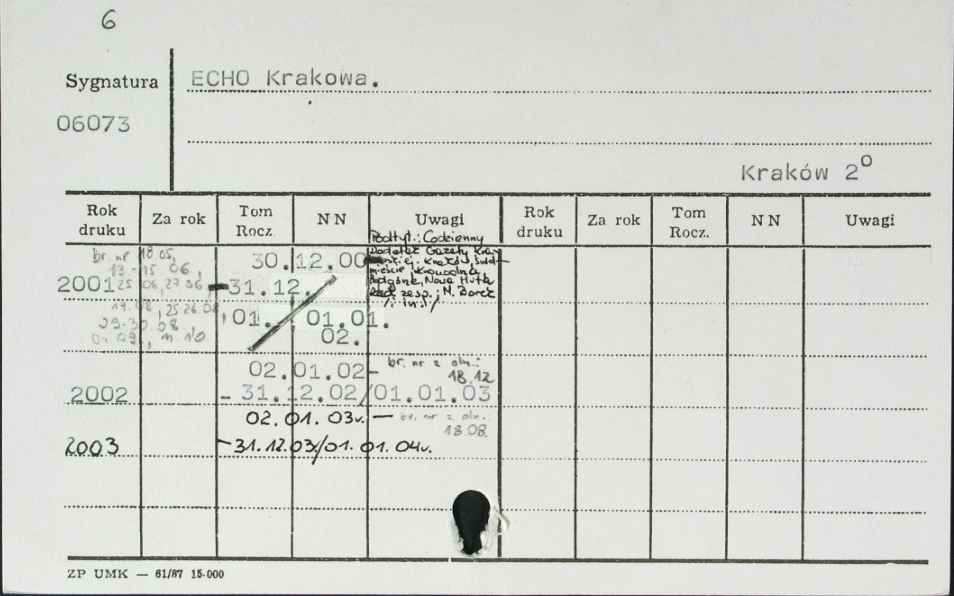 6
Sygnatura
ECHO Krakowa.
06073
Kraków 2º
Rok druku Za rok Tom Rocz. N N Uwagi Rok druku Za rok Tom Rocz. N N Uwagi
Podtyt.: Codzienny
Dodatek Gazety Kra-
Nowa Huta
Red. zesp.: M.
/i in./
br. nr 18.05,
13.-15 06,
25 06, 27 06
30.12.00
2001 -31.12.
25 26.08,
29-30.08
01. 01.01.
02.
02.01.02- br. nr z dn.:
18.12
2002 - 31.12.02/01.01.03
02.01.03r. — br. nr z dn.
18.08.
2003 -31.12.03/01.01.04r.
ZP UMK — 61/87 15-000